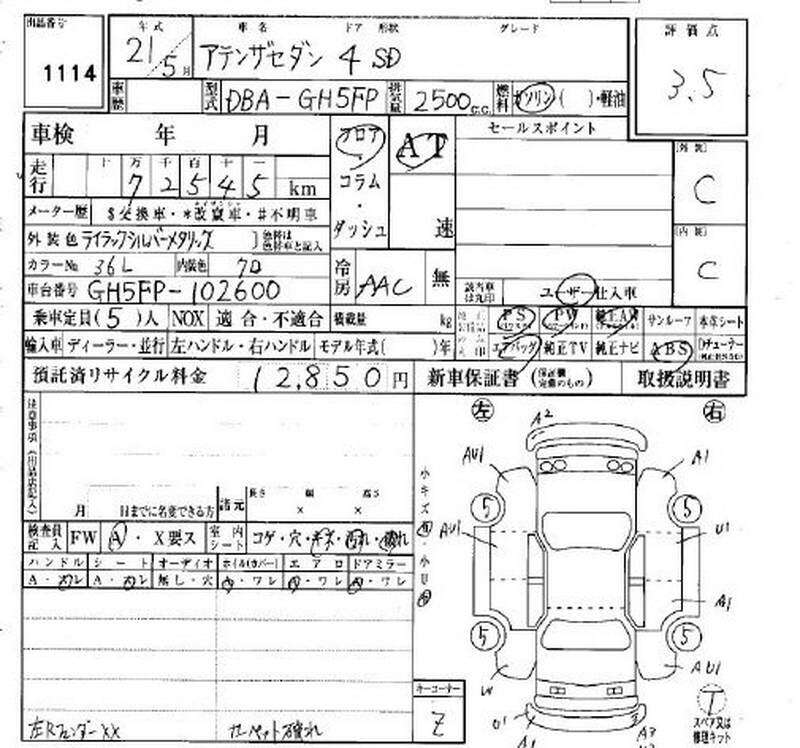 出品番号 1114
年式 車名 ドア 形状 グレード
21/5月 アテンザセダン 4 SD
評価点
3.5
車歴 型式 DBA-GH5FP 排気量 2500c.c. 燃料 ガソリン( )・軽油
車検 年 月
フロア・コラム・ダッシュ
AT
速
セールスポイント
[外装]
C
[内装]
C
走行 十 万 千 百 十 一
7 2 5 4 5 km
メーター歴 $交換車・*改竄車・#不明車
外装色 ライラックシルバーメタリック 色替は色替車と記入
カラーNo 36L 内装色
冷房 AAC 無
該当車は丸印 ユーザー仕入車
車台番号 GH5FP-102600
乗車定員(5)人 NOX 適合・不適合 積載量 kg
PS PW 純正AW サンルーフ 本革シート
輸入車 ディーラー・並行 左ハンドル・右ハンドル モデル年式( )年
エアバッグ 純正TV 純正ナビ ABS
預託済リサイクル料金 12,850円
新車保証書(保証書完備のもの) 取扱説明書
注意事項(出品店記入)
月 日までに名変できる方
諸元 長さ 幅 高さ
× ×
検査員記入 FW A・X要ス 室内シート コゲ・穴・キズ・汚れ・破れ
ハンドル シート オーディオ ホイル(カバー) エアロ ドアミラー
A・スレ A・スレ 無し・穴 A・ワレ A・ワレ A・ワレ
左Rフェンダーxx カーペット破れ
キーコーナー
Z
小キズ 有・小U 有
左 右
A2
AU1 A1
5 5
AU1 U1
A1
5 5
W AU1
U1 A1 A3
T
スペア又は修理キット